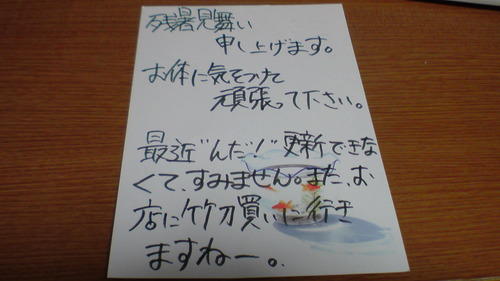 残暑見舞い
申し上げます。
お体に気をつけて
頑張って下さい。
最近"んだ!"更新できな
くて、すみません。また、お
店に竹刀買いに行き
ますねー。